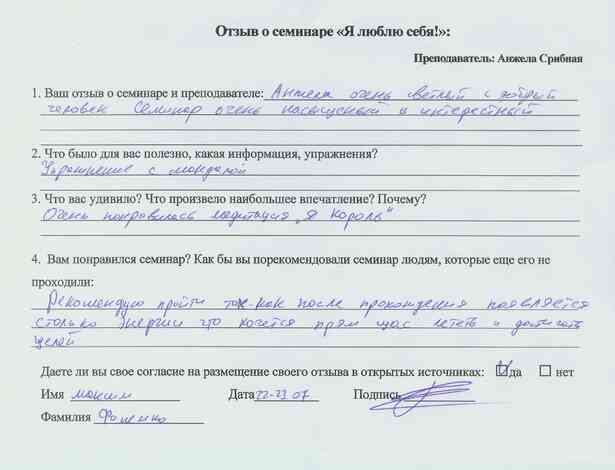 Отзыв о семинаре «Я люблю себя!»:
Преподаватель: Анжела Срибная
1. Ваш отзыв о семинаре и преподавателе: Анжела очень светлый и добрый
человек Семинар очень насыщеный и интерестный
2. Что было для вас полезно, какая информация, упражнения?
Упражнение с мандалой
3. Что вас удивило? Что произвело наибольшее впечатление? Почему?
Очень понравилась медитация „Я король"
4. Вам понравился семинар? Как бы вы порекомендовали семинар людям, которые еще его не
проходили:
Рекомендую пройти так-как после прохождения появляется
столько энергии что хочется прям щас лететь и достигать
целей
Даете ли вы свое согласие на размещение своего отзыва в открытых источниках: да нет
Имя максим Дата 22-23 07 Подпись
Фамилия